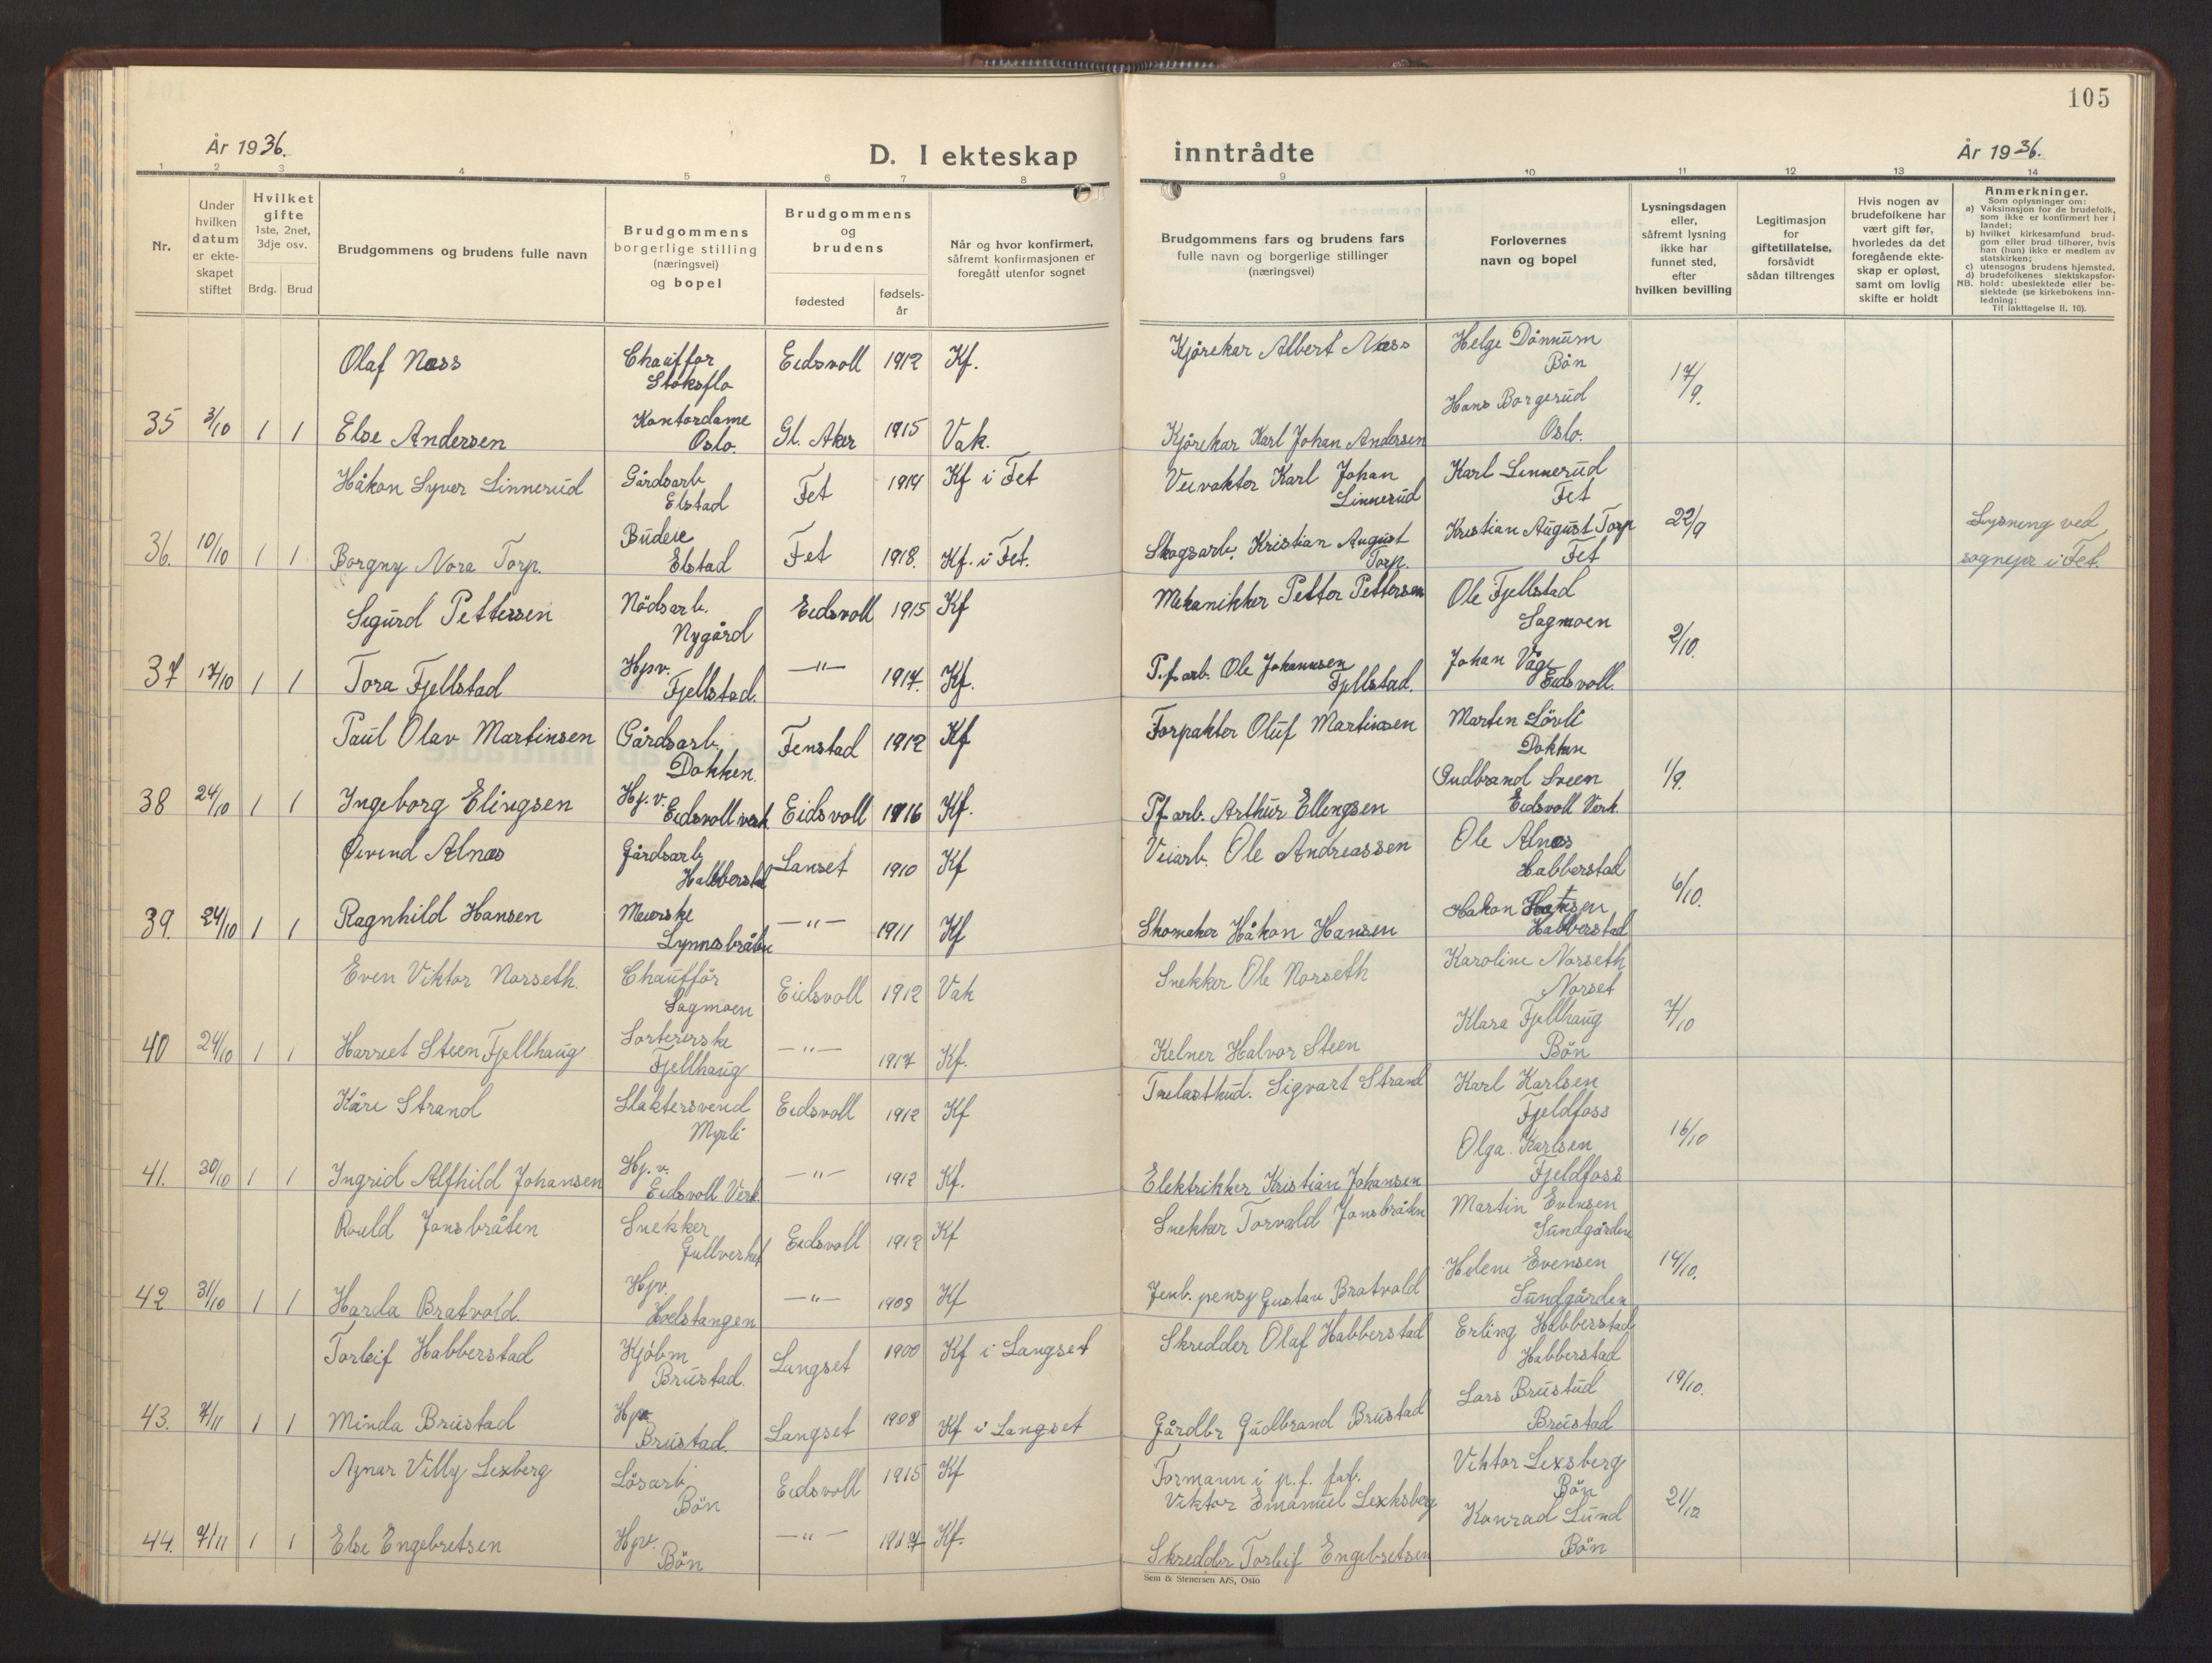 105
År 1936.
D. I ekteskap
inntrådte
År 1936.
1 2 3 4 5 6 7 8 9 10 11 12 13 14
Nr.
Under
hvilken
datum
er ekte-
skapet
stiftet
Hvilket
gifte
1ste, 2net,
3dje osv.
Brdg. Brud
Brudgommens og brudens fulle navn
Brudgommens
borgerlige stilling
(næringsvei)
og bopel
Brudgommens
og
brudens
fødested
fødsels-
år
Når og hvor konfirmert,
såfremt konfirmasjonen er
foregått utenfor sognet
Brudgommens fars og brudens fars
fulle navn og borgerlige stillinger
(næringsvei)
Forlovernes
navn og bopel
Lysningsdagen
eller,
såfremt lysning
ikke har
funnet sted,
efter
hvilken bevilling
Legitimasjon
for
giftetillatelse,
forsåvidt
sådan tiltrenges
Hvis nogen av
brudefolkene har
vært gift før,
hvorledes da det
foregående ekte-
skap er opløst,
samt om lovlig
skifte er holdt
Anmerkninger.
Som oplysninger om:
a) Vaksinasjon for de brudefolk,
som ikke er konfirmert her i
landet;
b) hvilket kirkesamfund brud-
gom eller brud tilhører, hvis
han (hun) ikke er medlem av
statskirken;
c) utensogns brudens hjemsted.
d) brudefolkenes slektskapsfor-
NB. hold: ubeslektede eller be-
slektede (se kirkebokens inn-
ledning;
Til iakttagelse II. 10).
Olaf Næss Chauffør Eidsvoll 1912 Kf. Kjørekar Albert Næss Helge Dønnum
Støksflo Bøn 17/9.
Hans Borgerud
35 3/10 1 1 Else Andersen Kontordame Gl. Aker 1915 Vak. Kjørekar Karl Johan Andersen Oslo.
Oslo.
Håkon Syver Linnerud Gårdsarb. Fet 1914 Kf i Fet Veivakter Karl Johan Karl Linnerud
Elstad Linnerud Fet
36. 10/10 1 1 Borgny Nora Torp. Budeie Fet 1918. Kf. i Fet. Skogsarb. Kristian August Kristian August Torp 22/9 Lysning ved
Elstad Torp. Fet sognepr i Fet.
Sigurd Pettersen Nödsarb. Eidsvoll 1915 Kf Mekanikker Petter Pettersen Ole Fjellstad
Nygård Sagmoen 2/10.
37 17/10 1 1 Tora Fjellstad Hpv. —"— 1917. Kf. P.f. arb. Ole Johannsen Johan Våge
Fjellstad. Fjellstad. Eidsvoll.
Paul Olav Martinsen Gårdsarb. Fenstad 1912 Kf Forpakter Oluf Martinsen Martin Lövli
Dokken. Dokken
38 24/10 1 1 Ingeborg Elingsen Hj. v. Eidsvoll 1916 Kf. Pf arb. Arthur Ellingsen Gudbrand Sveen 1/9.
Eidsvoll verk. Eidsvoll Verk.
Øivind Alnæs Gårdsarb. Lanset 1910 Kf Veiarb. Ole Andreassen Ole Alnæs
Habberstad Habberstad
39. 24/10 1 1 Ragnhild Hansen Meierske —"— 1911 Kf Skomaker Håkon Hansen Håkon Hansen 6/10.
Lynnesbråten Habberstad
Even Viktor Norseth. Chauffør Eidsvoll 1912 Vak Snekker Ole Norseth Karoline Norseth
Sagmoen Norset
40 24/10 1 1 Harriet Steen Fjellhaug Sortererske —"— 1917 Kf. Kelner Halvor Steen Klara Fjellhaug 7/10
Fjellhaug Bön
Kåre Strand Slaktersvend Eidsvoll 1912 Kf Trelasthud. Sigvart Strand Karl Karlsen
Myrli Fjeldfoss
41. 30/10 1 1 Ingrid Alfhild Johansen Hj. v. —"— 1912 Kf. Elektrikker Kristian Johansen Olga Karlsen 16/10
Eidsvoll Verk. Fjeldfoss
Roald Jønsbråten Snekker Eidsvoll 1912 Kf Snekker Torvald Jønsbråten Martin Evensen
Gullverket Sundgården
42 31/10 1 1 Harda Bratvold. Hpv. —"— 1908 Kf Jenb. pensj Gustav Bratvold Helene Evensen 14/10.
Hoelstangen Sundgården
Torleif Habberstad Kjøbm Langset 1900 Kf i Langset Skredder Olaf Habberstad Erling Habberstad
Brustad. Habberstad
43. 7/11 1 1 Minda Brustad Hpv Langset 1908 Kf i Langset Gårdbr Gudbrand Brustad Lars Brustad 19/10.
Brustad. Brustad
Agnar Villy Lexberg Lösarb. Eidsvoll 1915 Kf Formann i p.f. fab. Viktor Lexsberg
Bön Viktor Emanuel Lexksberg Bön
44. 7/11 1 1 Else Engebretsen Hpv. —"— 1917 Kf. Skredder Torleif Engebretsen Konrad Lund 21/10
Bön Bön
Sem & Stenersen A/S, Oslo